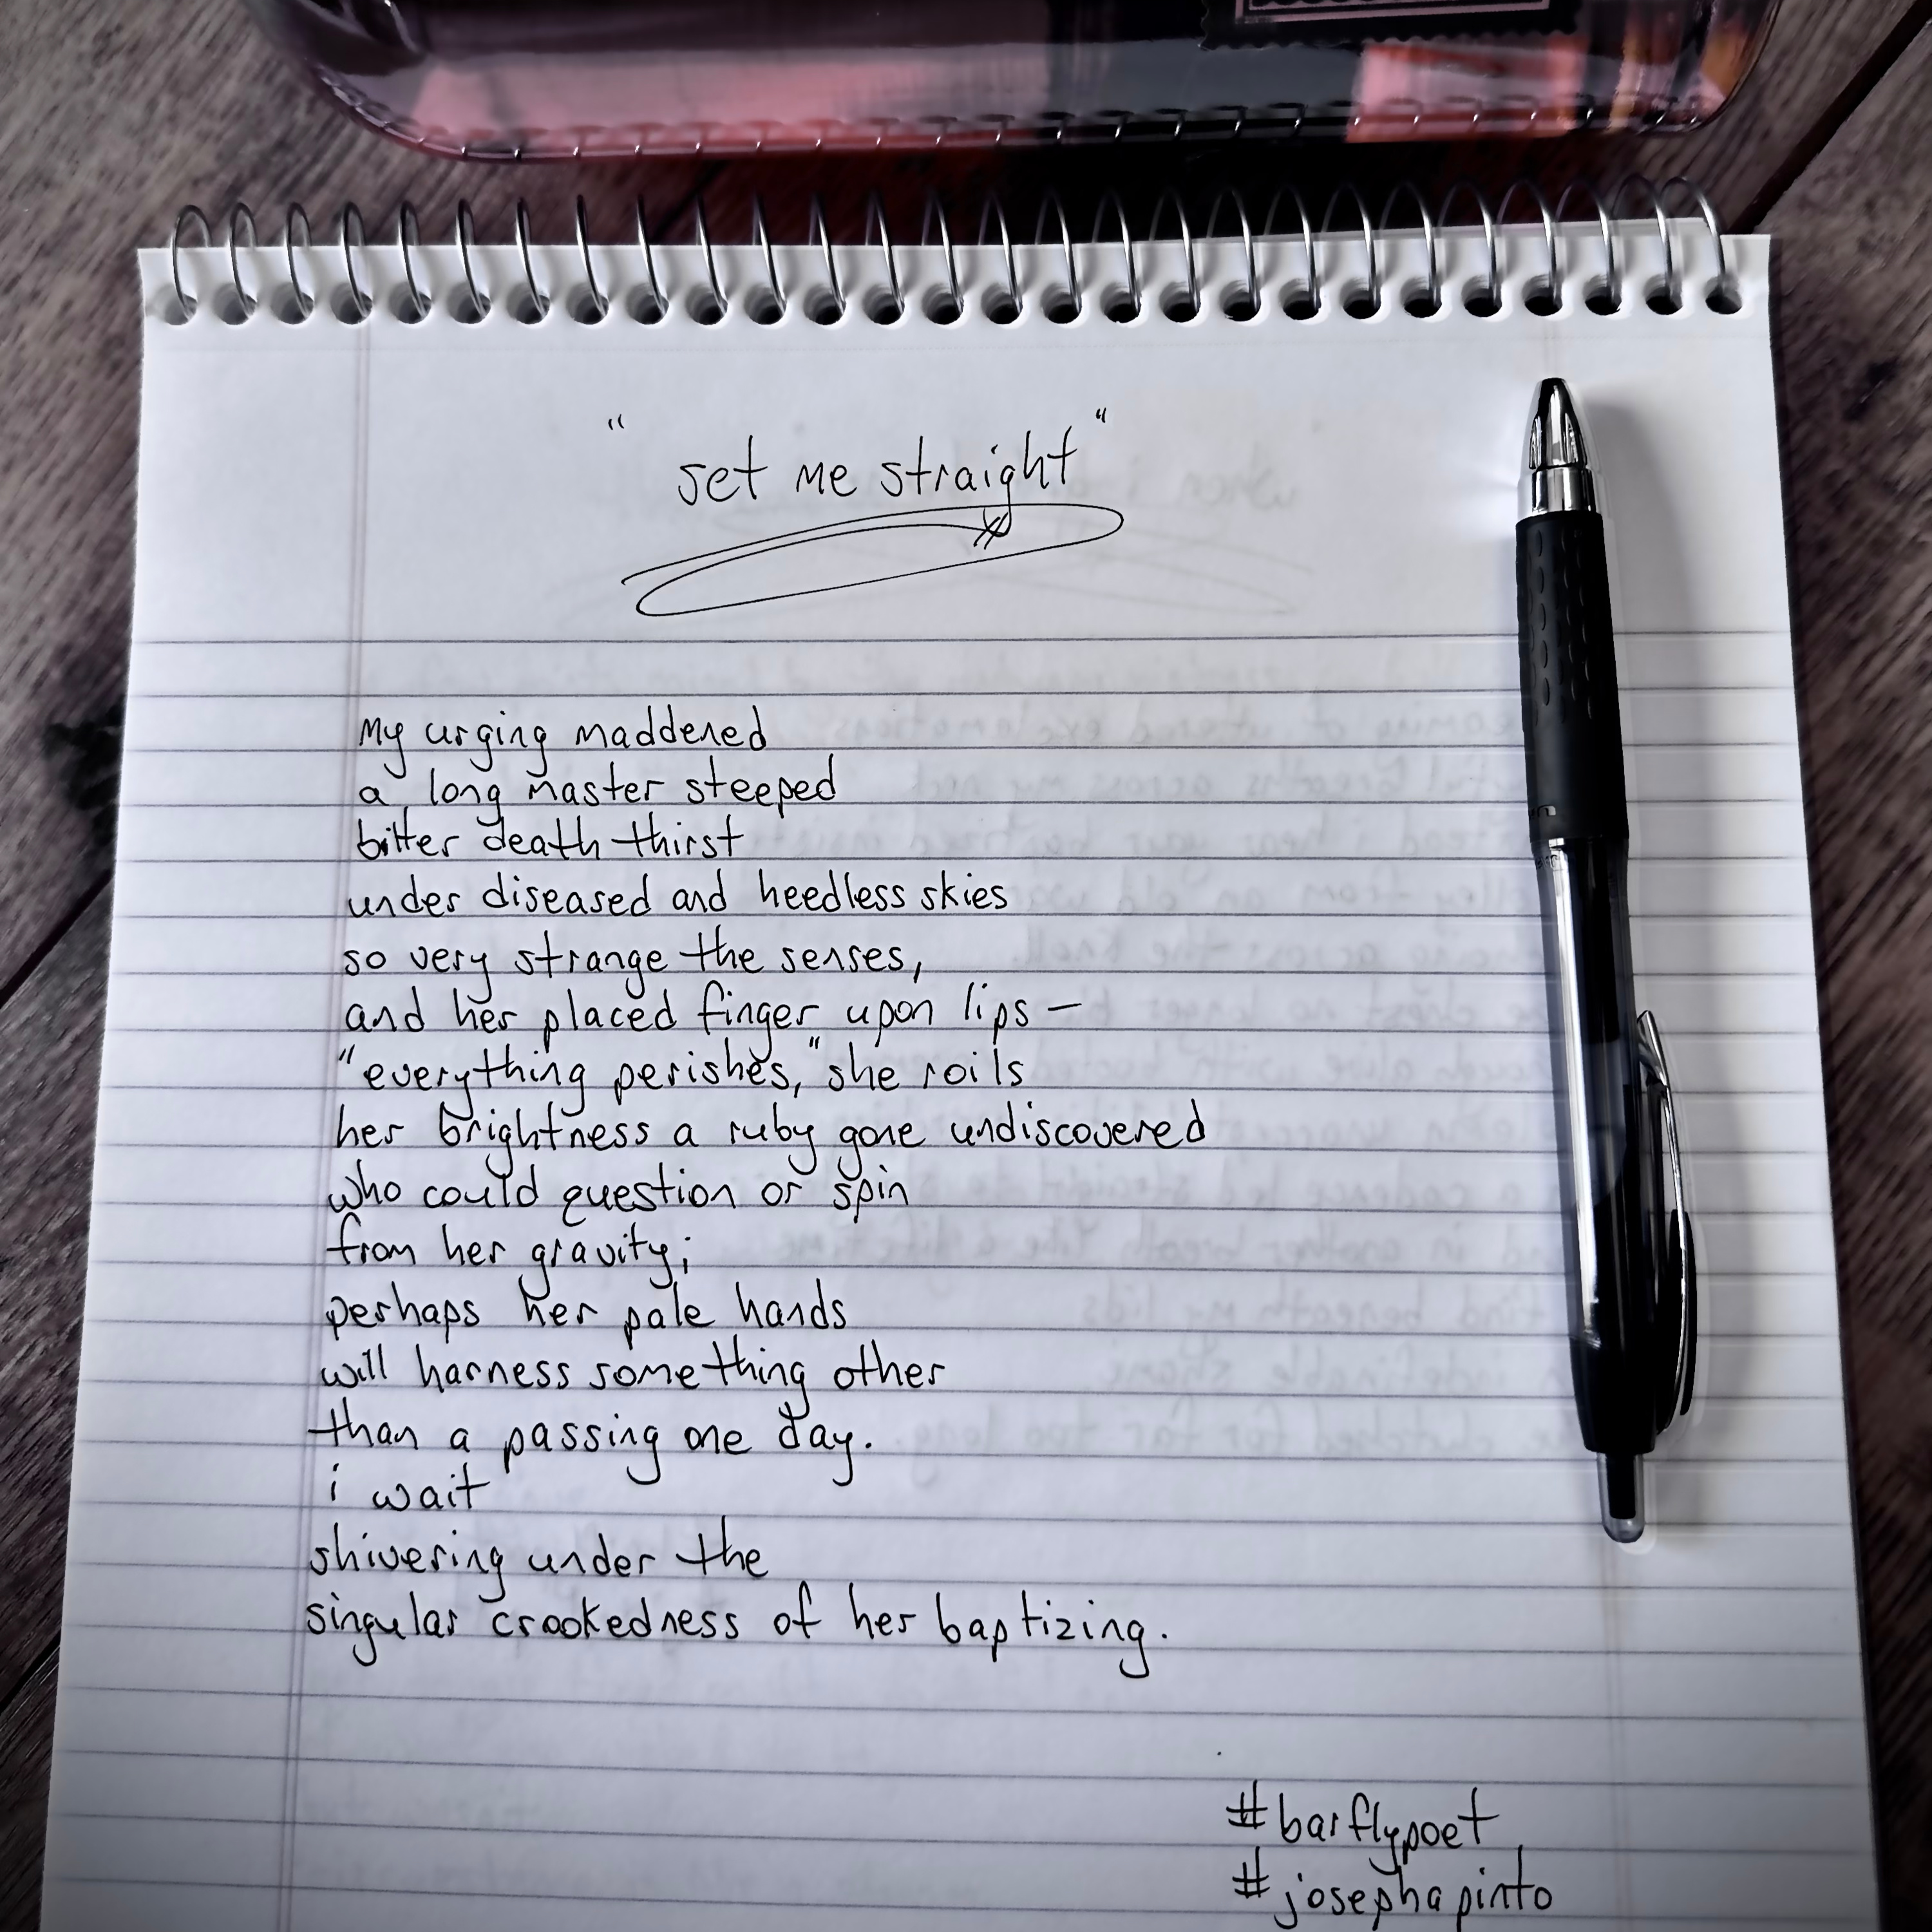 "set me straight"
my urging maddened
a long master steeped
bitter death thirst
under diseased and heedless skies
so very strange the senses,
and her placed finger upon lips —
"everything perishes," she roils
her brightness a ruby gone undiscovered
who could question or spin
from her gravity;
perhaps her pale hands
will harness something other
than a passing one day.
i wait
shivering under the
singular crookedness of her baptizing.
#barflypoet
#josephapinto